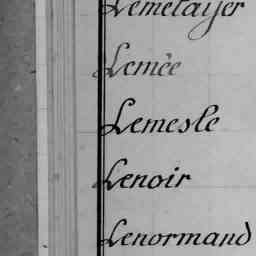 Lemetayer
Lemée
Lemesle
Lenoir
Lenormand